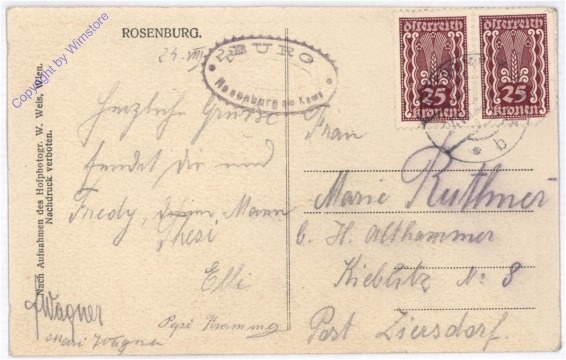 ROSENBURG.
24. VIII
BURG
Rosenburg am Kamp
österreich
25
kronen
österreich
25
kronen
b
Copyright by Wimstore
Nach Aufnahmen des Hofphotogr. W. Weis, Wien.
Nachdruck verboten.
Herzliche Grüsse
sendet dir und
Fredy, Mann
Thesi
Elli
Wagner
Mari Wagner
Pepi
Frau
Marie Ruthner
b. H. Althammer
Kieblitz No 8
Post Ziersdorf.